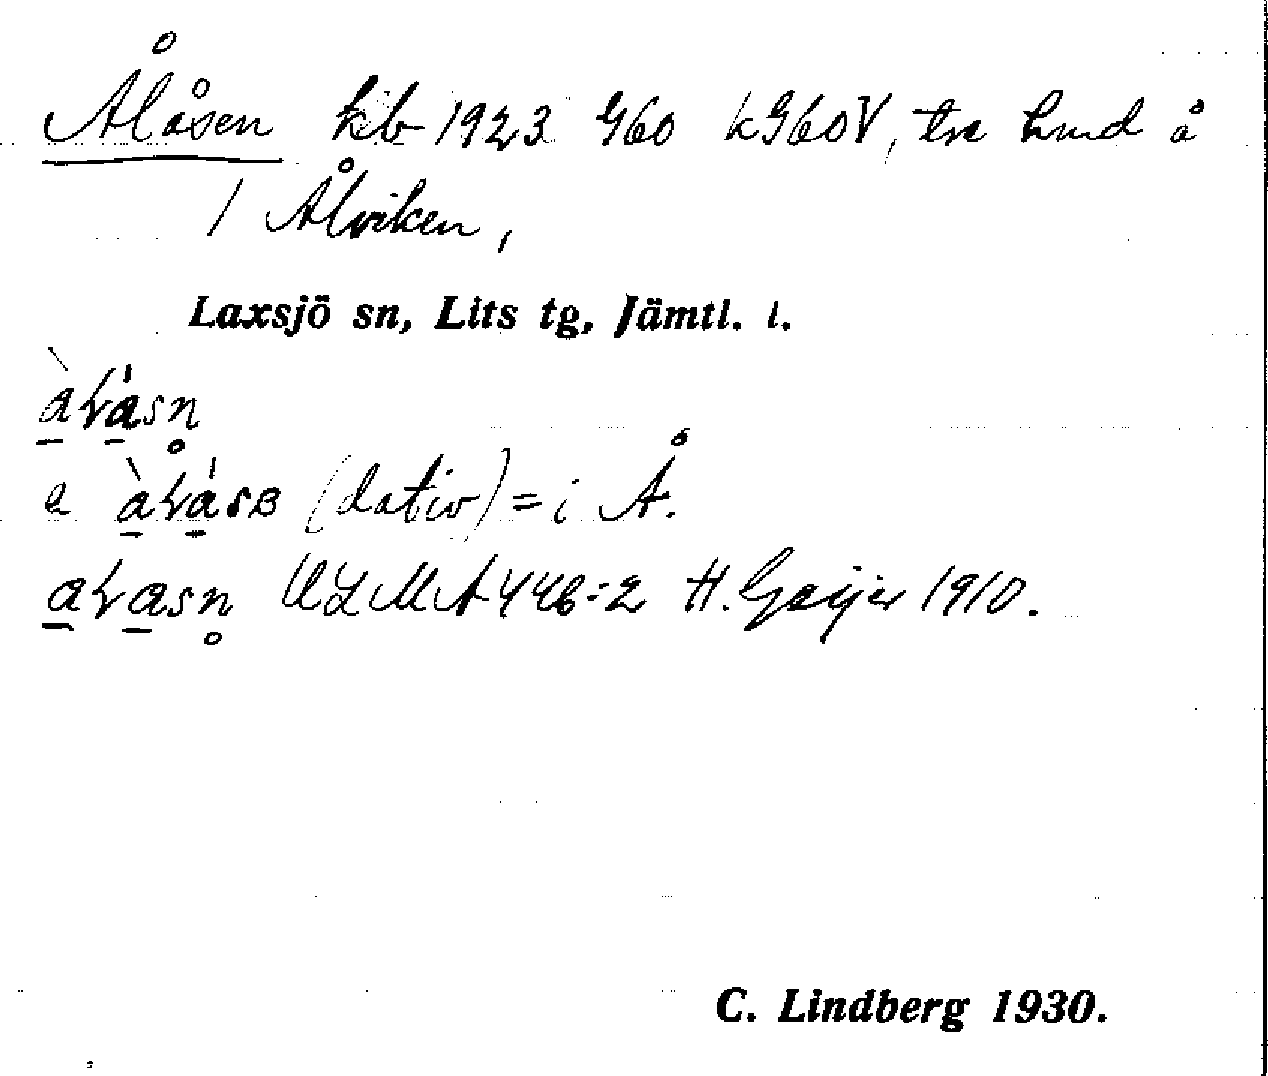 Ålåsen kb 1923 G60 kG60V, tre hmd å
1 Ålviken,
Laxsjö sn, Lits tg, Jämtl. l.
(dativ) = i Å.
ULMA 446:2 H. Geijer 1910.
C. Lindberg 1930.